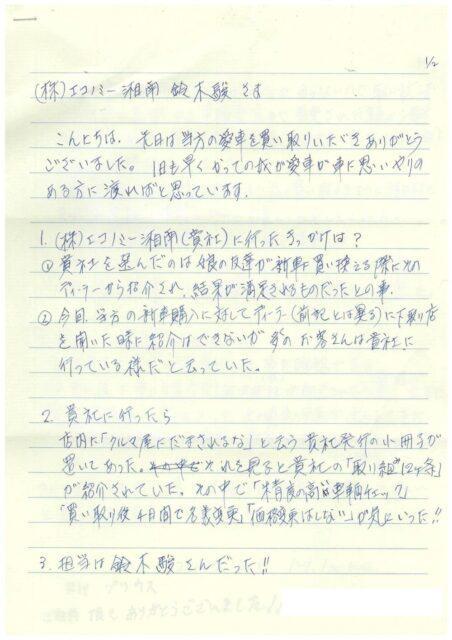 1/2
(株)エコノミー湘南 鈴木駿さま
こんにちは、先日は当方の愛車を買い取りいただきありがとう
ございました。1日も早くかつての我が愛車が車に思いやりの
ある方に渡ればと思っています。
1. (株)エコノミー湘南(貴社)に行ったきっかけは?
① 貴社を選んだのは娘の友達が新車に買い換える際にその
ディーラーから紹介され、結果が満足されるものだったとの事.
② 今回、当方の新車購入に対してディーラー(前記とは異る)に下取り店
を聞いた時に紹介はできないが多くのお客さんは貴社に
行っている様だと云っていた。
2. 貴社に行ったら
店内に「クルマ屋にだまされるな」と云う貴社発行の小冊子が
置いてあった。それを見ると貴社の「取り組み12ヶ条」
が紹介されていた。その中で「精度の高い車輌チェック」
「買い取り後4日間で名義変更」「価格変更はしない」が気にいった!!
3. 担当は鈴木駿さんだった!!